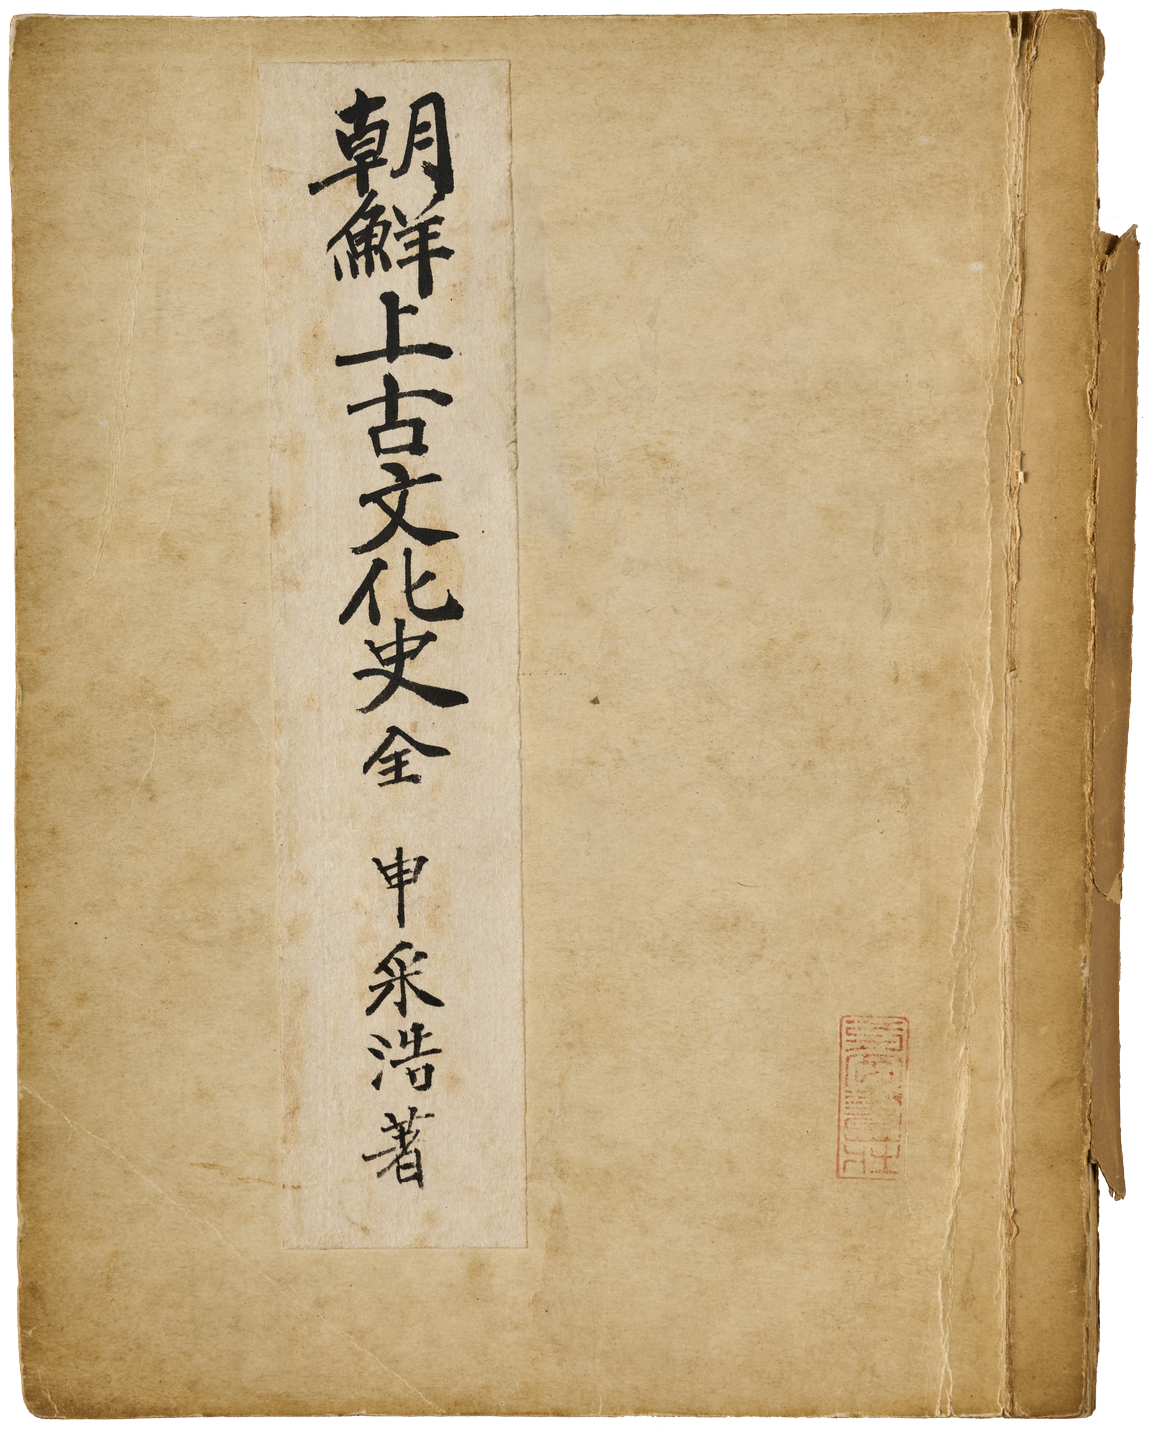 朝鮮上古文化史 全 申采浩 著